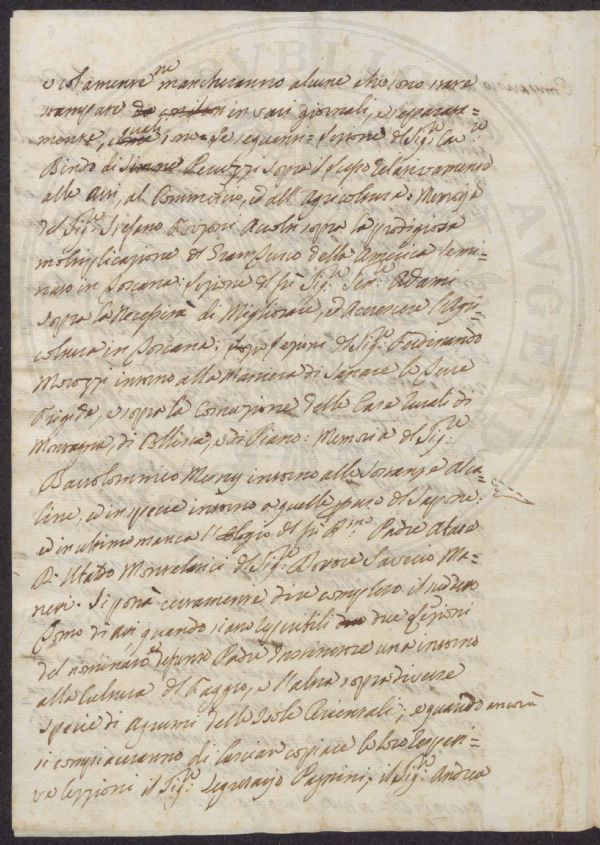 e solamente ne mancheranno alcune che sono state
stampate in vari giornali, e separata=
mente, quali sono le seguenti = Lezione del Sig.re Cav.re
Bindo di Simone Peruzzi sopra il lusso relativamente
alle Arti, al Commercio, ed all'Agricoltura. Memoria
del Sig.re Stefano Bonsi sopra la prodigiosa
moltiplicazione del Gran Turco della America semi=
nato in Toscana: Lezione del fù Sig.re Adami
sopra la Necessità di Migliorare, ed Accrescere l'Agri=
coltura in Toscana: Lezioni del Sig.re Ferdinando
Morozzi intorno alla Maniera di Sanare le Terre
Frigide, e sopra la Costruzione delle Case Rurali di
Montagna, di Collina, e di Piano: Memoria del Sig.re
Bartolommeo Mesny intorno alle sostanze Alca=
line, ed in specie intorno a quelle per uso del Sapone:
ed in ultimo manca l'Elogio del fù R.mo Padre Abate
D. Ubaldo Montelatici del Sig.re Dottore Saverio Ma=
netti. Si potrà certamente dire completo il nostro
Tomo di Atti, quando siano reperibili due Lezioni
del nominato defunto Padre Institutore una intorno
alla Cultura del Faggio, e l'altra sopra diverse
specie di Agrumi delle Isole Orientali; e quando ancora
si compiaceranno di lasciar copiare le loro respetti=
ve lezioni il Sig.re Pagnini, il Sig.re Andrea